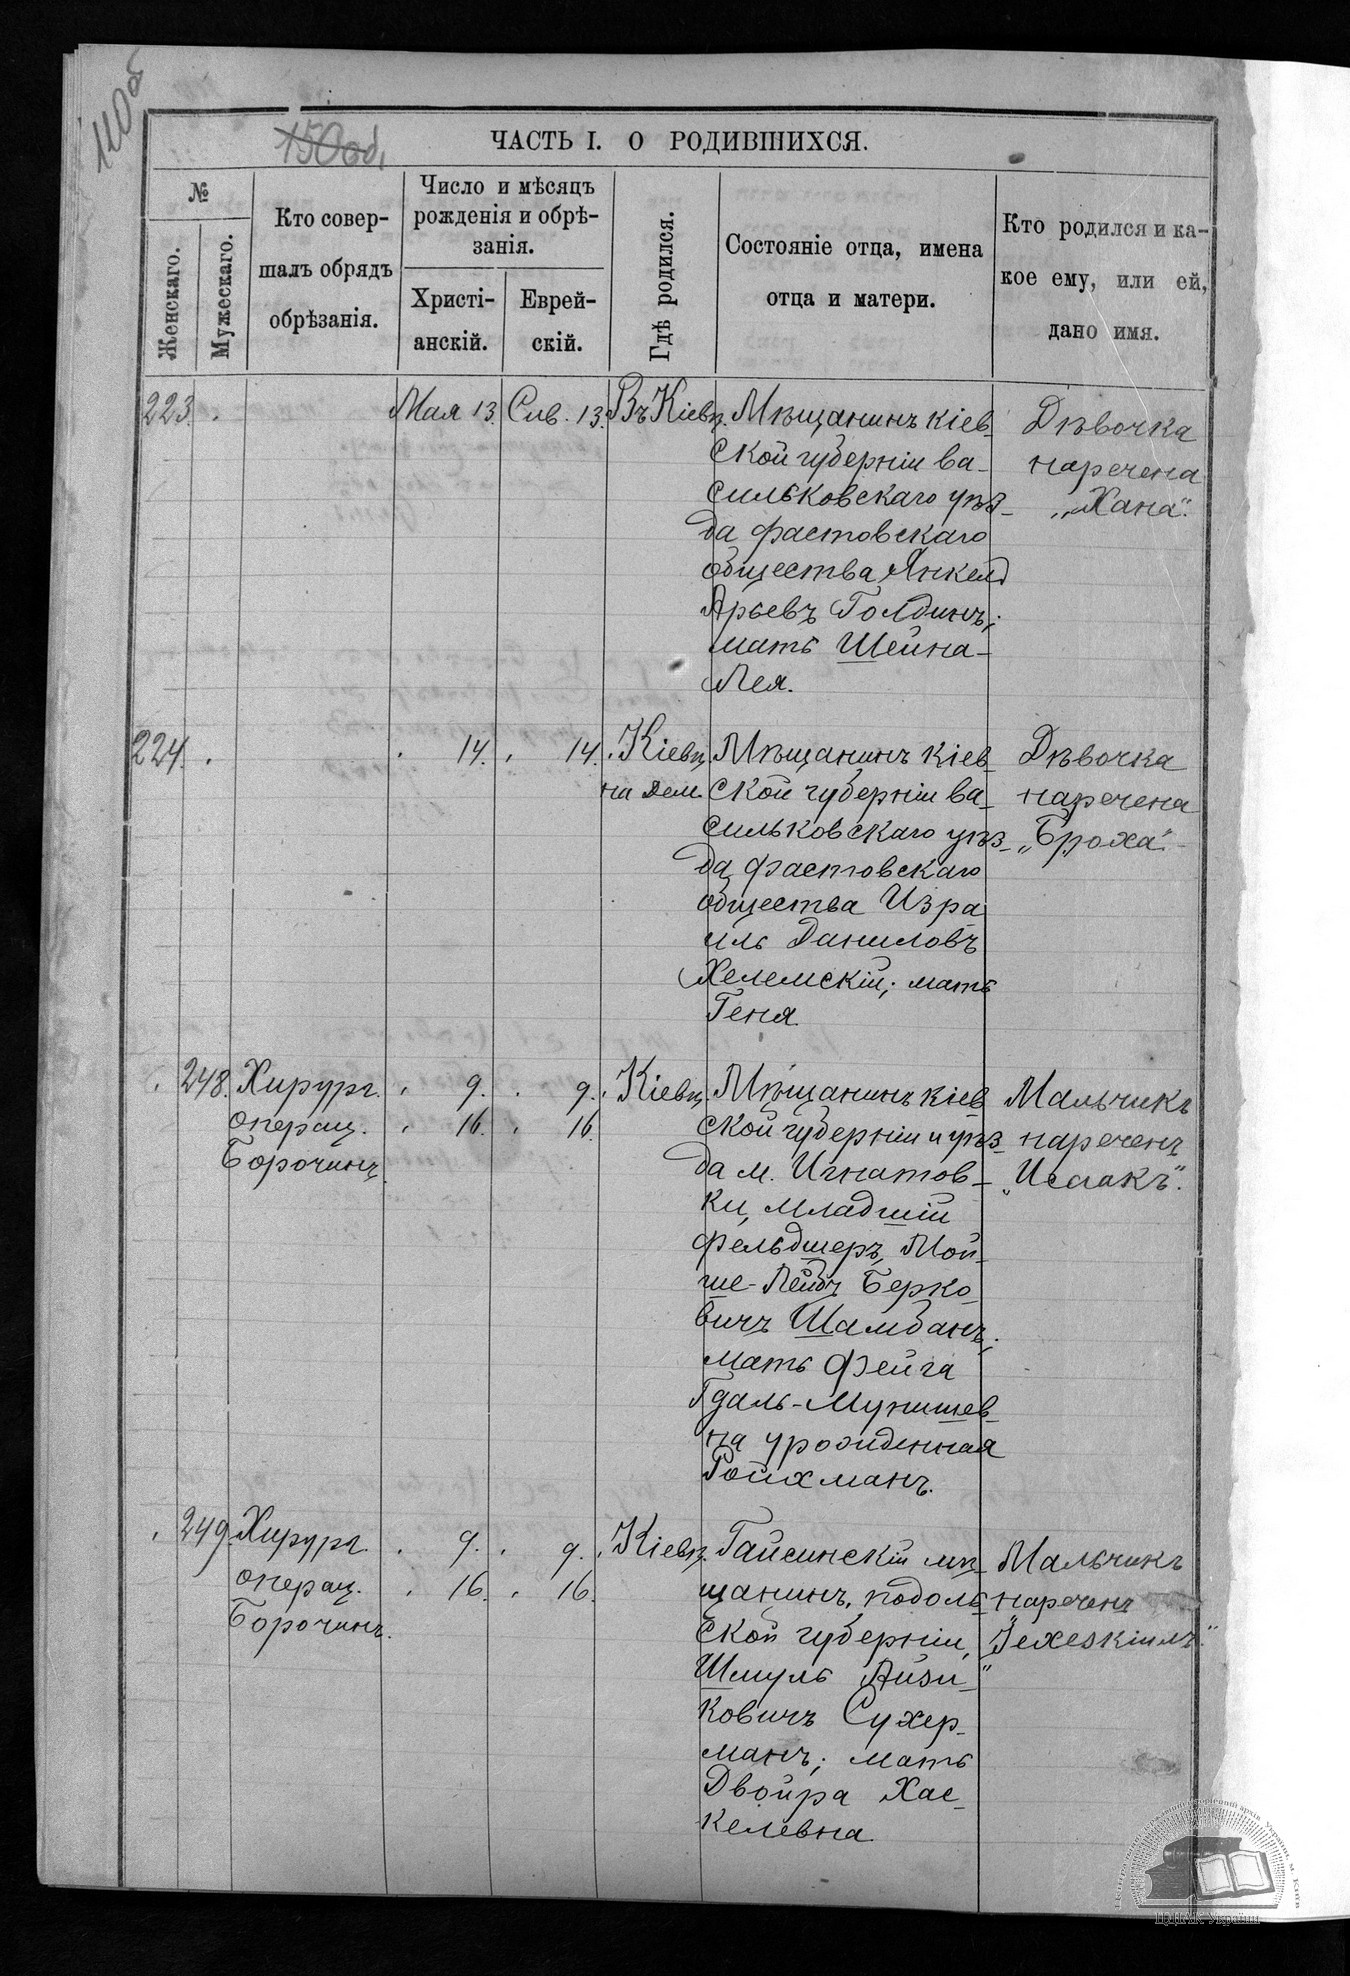 110 об
150 об.
ЧАСТЬ I. О РОДИВШИХСЯ.
№
Женскаго.
Мужескаго.
Кто совер-
шалъ обрядъ
обрѣзанія.
Число и мѣсяцъ
рожденія и обрѣ-
занія.
Христі-
анскій.
Еврей-
скій.
Гдѣ родился.
Состояніе отца, имена
отца и матери.
Кто родился и ка-
кое ему, или ей,
дано имя.
223.
Мая 13.
Сив. 13.
Въ Кіевѣ.
Мѣщанинъ кіев-
ской губерніи ва-
сильковскаго уѣз-
да фастовскаго
общества Янкель
Арьевъ Голдинъ;
мать Шейна-
Лея.
Дѣвочка
наречена
„Хана".
224.
14.
14.
Кіевѣ
на Дем.
Мѣщанинъ кіев-
ской губерніи ва-
сильковскаго уѣз-
да, фастовскаго
общества Изра
иль Даниловъ
Хелемскій; мать
Геня.
Дѣвочка
наречена
„Броха".
248.
Хирургъ
операц.
Борочинъ.
9.
16.
9.
16.
Кіевѣ.
Мѣщанинъ кіев
ской губерніи и уѣз-
да м. Игнатов-
ки, младшій
фельдшеръ, Мой-
ше-Лейбъ Берко-
вичъ Шамбанъ;
мать Фейга
Гдаль-Мунишев-
на урожденная
Ройхманъ.
Мальчикъ
нареченъ
„Исаакъ".
249.
Хирургъ
операц.
Борочинъ.
9.
16.
9.
16.
Кіевѣ.
Гайсинскій мѣ-
щанинъ, подоль-
ской губерніи,
Шмуль Айзи-
ковичъ Сухер-
манъ; мать
Двойра Хас-
келевна.
Мальчикъ
нареченъ
„Іехезкіилъ"
ЦДІАК України